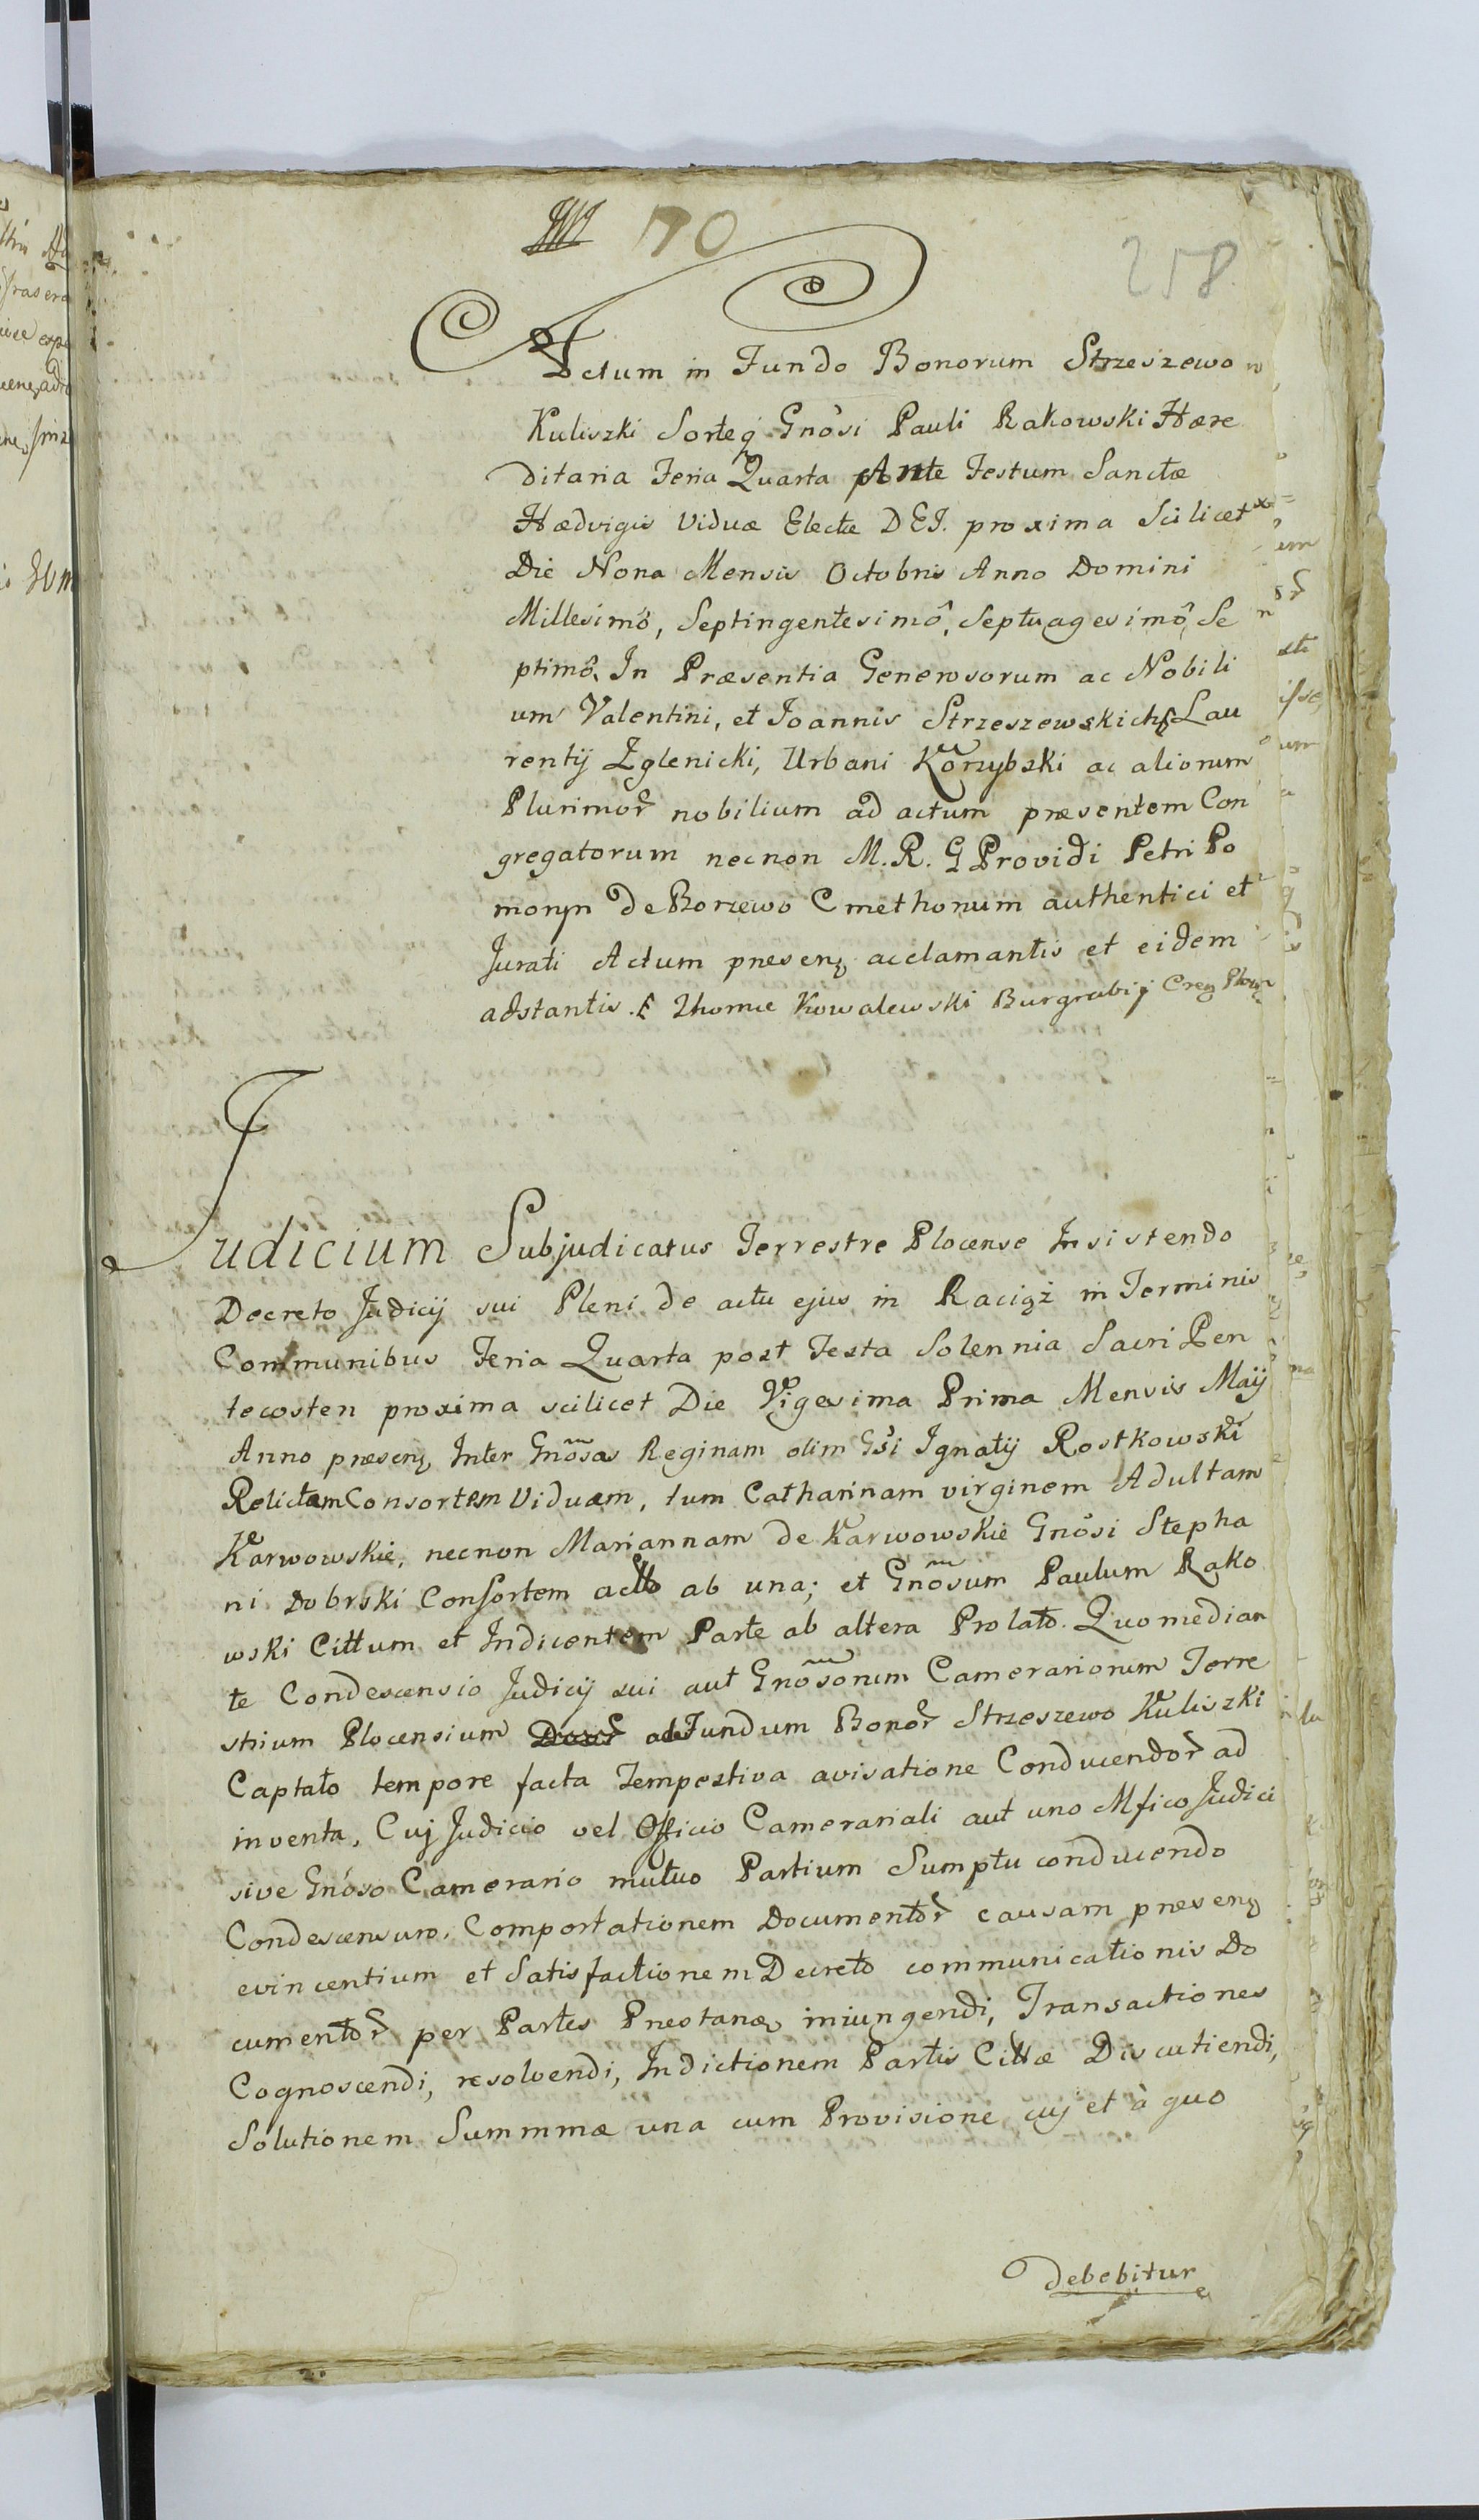 70
258
Actum in Fundo Bonorum Strzeszewo
Kuliszki Sorteq Gnosi Pauli Rakowski Hære
ditaria Feria Quarta Ante Festum Sanctæ
Hædvigis Viduæ Electæ DEI. proxima Scilicet
Die Nona Mensis Octobris Anno Domini
Millesimô, Septingentesimô, Septuagesimô, Se
ptimô, In Præsentia Generosorum ac Nobili
um Valentini, et Joannis Strzeszewskich, Lau
rentij Zglenicki, Urbani Korzybski ac aliorum
Plurimor nobilium ad actum præsentem Con
gregatorum necnon M. R. G Providi Petri Po
moryn de Borzewo Cmethonum authentici et
Jurati Actum præsens acclamantis et eidem
adstantis. E Thomæ Kowalewski Burgrabij
Judicium Subjudicatus Terrestre Plocense Insistendo
Decreto Judicij sui Pleni de actu ejus in Raciąż in Terminis
Communibus Feria Quarta post Festa Solennia Sacri Pen
tecosten proxima scilicet Die Vigesima Prima Mensis Maij
Anno præsens Inter Gnosas Reginam olim Gsi Ignatij Rostkowski
Relictam Consortem Viduam, tum Catharinam virginem Adultam
Karwowskie, necnon Mariannam de Karwowskie Gnosi Stepha
ni Dobrski Consortem actto ab una; et Gnosum Paulum Rako
wski Cittum et Indicentem Parte ab altera Prolato. Quo median
te Condescensio Judicij sui aut Gnosorum Camerariorum Terre
strium Plocensium ad Fundum Bonor Strzeszewo Kuliszki
Captato tempore facta Tempestiva avisatione Conducendor ad
inventa, Cuj Judicio vel Officio Camerariali aut uno Mfico Judici
sive Gnoso Camerario mutuo Partium Sumptu conducendo
Condescensuro, Comportationem Documentor causam præsens
evincentium et Satisfactionem Decreto communicationis Do
cumentor per Partes Præstanæ iniungendi, Transactiones
Cognoscendi, resolvendi, Indictionem Partis Cittæ Discutiendi,
Solutionem Summmæ una cum Provisione cuj et à quo
debebitur